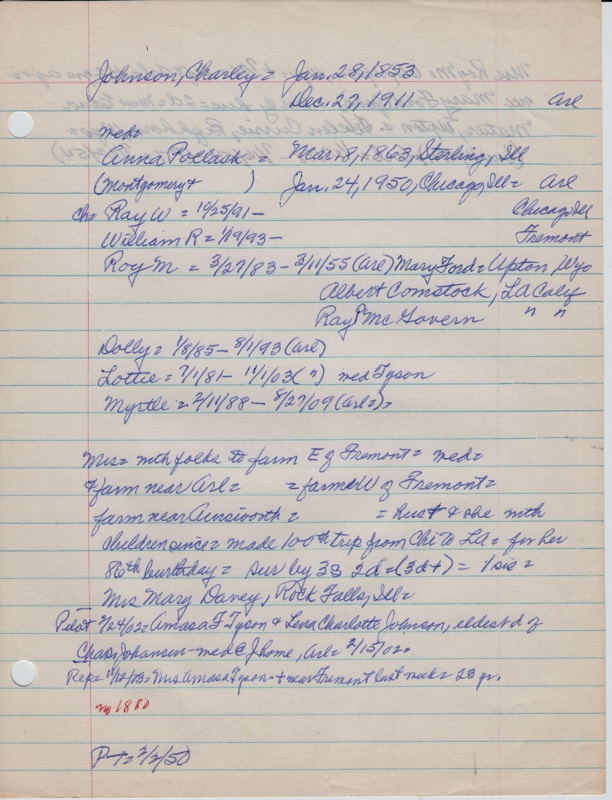 Johnson, Charley = Jan. 28, 1853
Dec. 27, 1911 Arl
med=
Anna Pollask = Mar. 8, 1863, Sterling, Ill
(Montgomery + ) Jan. 24, 1950, Chicago, Ill = Arl
ch= Ray W = 10/25/91 - Chicago Ill
William R = 1/19/93 - Fremont
Roy M = 3/27/83 - 3/11/55 (Arl) Mary Ford = Upton, Wyo
Albert Comstock, LA Calif
Ray P McGovern " "
Dolly = 1/8/85 - 8/1/93 (Arl)
Lottie = 7/1/81 - 11/1/03 (") med Tyson
Myrtle = 2/11/88 - 8/27/09 (Arl =) =
Mrs = with folks to farm E of Fremont = med =
+ farm near Arl = = farm W of Fremont =
farm near Ainsworth = = hus + & she with
children since = made 100th trip from Chi to LA = for her
86th birthday = sur by 3s 2d = (3d+) = 1 sis =
Mrs Mary Davey, Rock Falls, Ill =
Pilot 2/24/02 = Amasa F Tyson & Lena Charlotte Johnson, eldest d of
Chas Johansen - med @ J home, Arl = 2/15/02.
Rep = 11/12/03 = Mrs Amasa Tyson - + near Fremont last week = 23 yr.
m 1880
P-T = 2/2/50